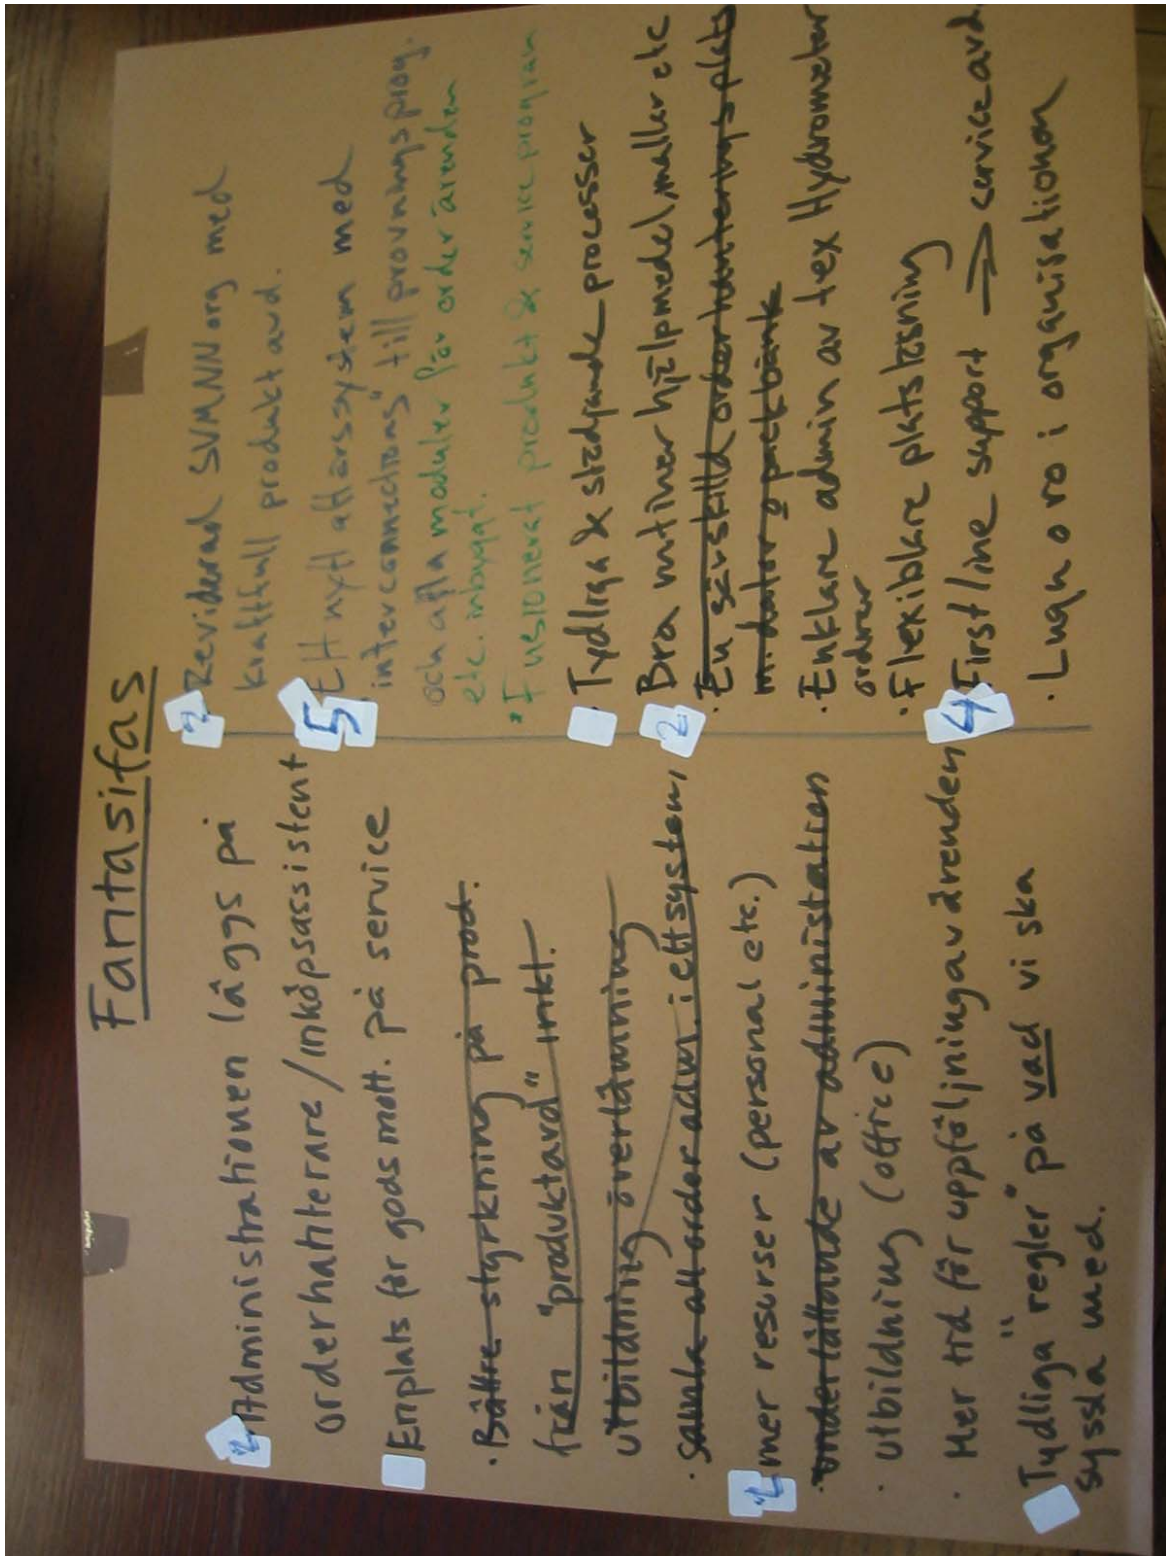 Fantasifas
2 Administrationen läggs på
orderhanterare/inköpsassistent
Enplats för godsmott. på service
· Bättre styrkning på prod.
från "produktavd" inkt.
utbildning överlämning
· samla all order adm. i ett system,
2 mer resurser (personal etc.)
· underlättande av administration
· Utbildning (office)
· Mer tid för uppföljning av ärenden
Tydliga "regler" på vad vi ska
syssla med.
2 Reviderad SVMNN org med
kraftfull produktavd.
5 Ett nytt affärssystem med
"interconnections" till provningsprog.
och alla moduler för order ärenden
etc. inbyggt.
· Fusionerat produkt & service program
· Tydliga & stödjande processer
2 Bra rutiner hjälpmedel/mallar etc
· En särskild orderhanteringsplats
m. dator o packbänk
· Enklare admin av tex Hydrometer
ordrer
· Flexiblare platslösning
4 First line support → service avd
· Lugn o ro i organisationen